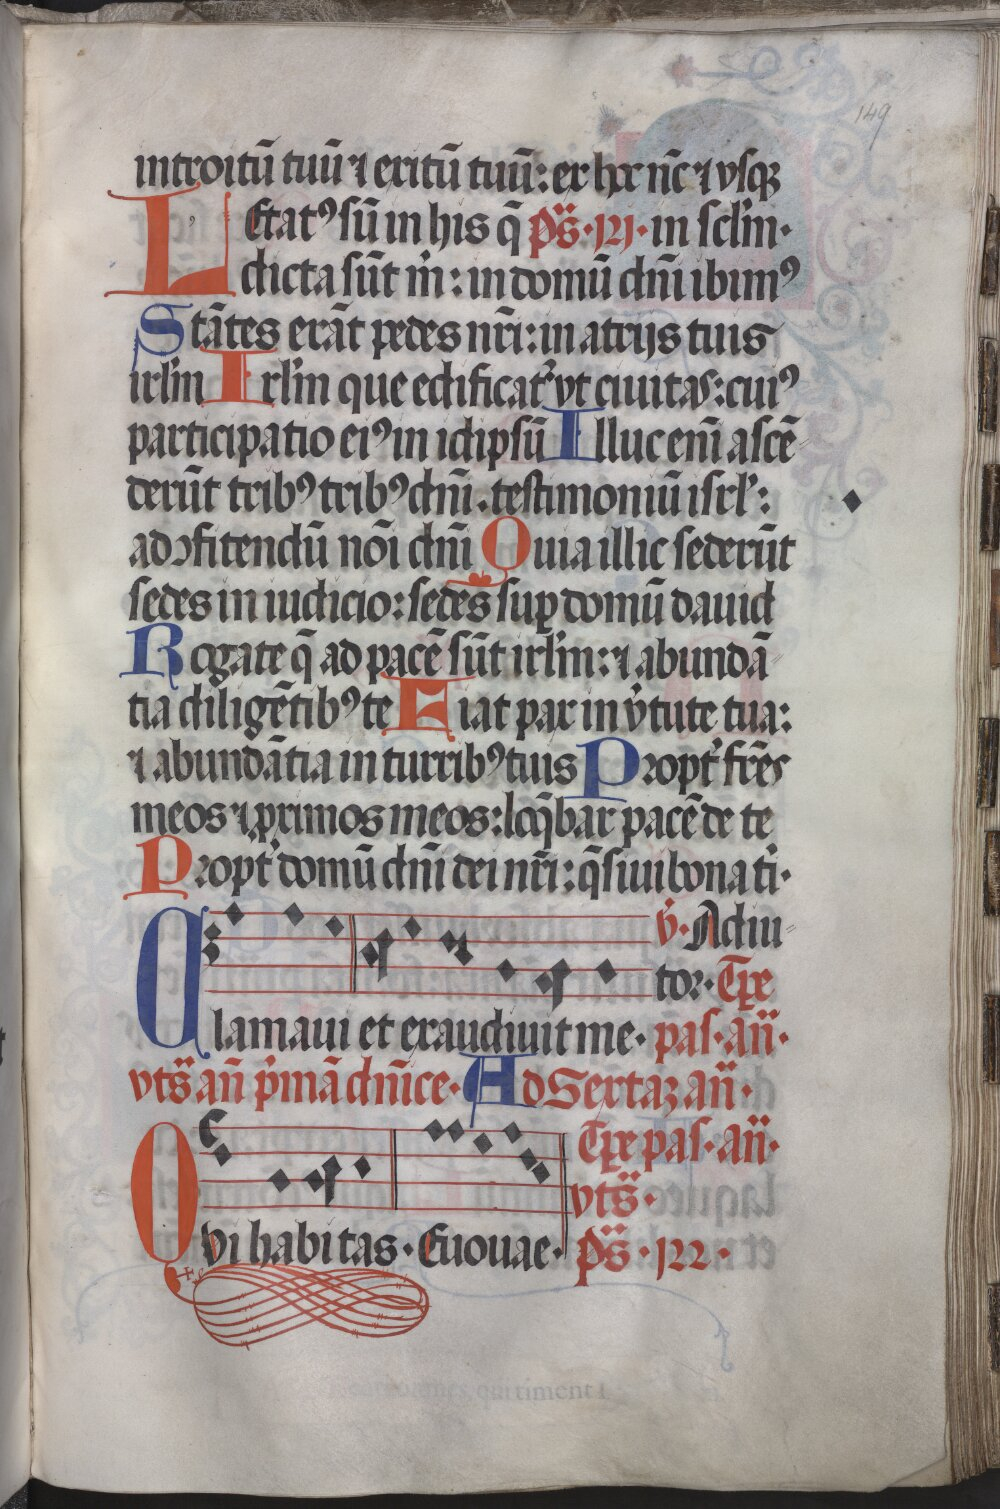 149
introitū tuū ⁊ exitū tuū: ex hͦ nc̄ ⁊ vsqꝫ
LEtatꝰ sū in his q̄ p̄s · 121 · in scl'm ·
dicta sūt m̄: in domū dn̄i ibimꝰ
Stātes erāt pedes nr̄i: in atrijs tuis
irl'm Irl'm que edificat᷑ vt ciuitas: cuiꝰ
participatio eiꝰ in idipsū Illuc eni᷑ ascē-
derūt tribꝰ tribꝰ dn̄i. testimoniū isrl':
ad ↄfitendū nōi dn̄i Quia illic sederūt
sedes in iudicio: sedes suꝑ domū dauid
Rogate q̄ ad pacē sūt irl'm: ⁊ abundā-
tia diligētibꝰ te Fiat pax in v᷑tute tua:
⁊ abundātia in turribꝰ tuis Propt᷑ fr̄es
meos ⁊ ꝓximos meos: loq̄bar pacē de te
Propt᷑ domū dn̄i dei nr̄i: q̄siui bona ti᷑ ·
v᷑ · Adiu-
tor · Tꝑe
Clamaui et exaudiuit me · pas · an̄ ·
vts̄ an̄ p᷑mā dn̄ice · Ad Sextaꝫ an̄ ·
Tꝑe pas · an̄ ·
vts̄ ·
Qvi habitas · Euouae · p̄s · 122 ·